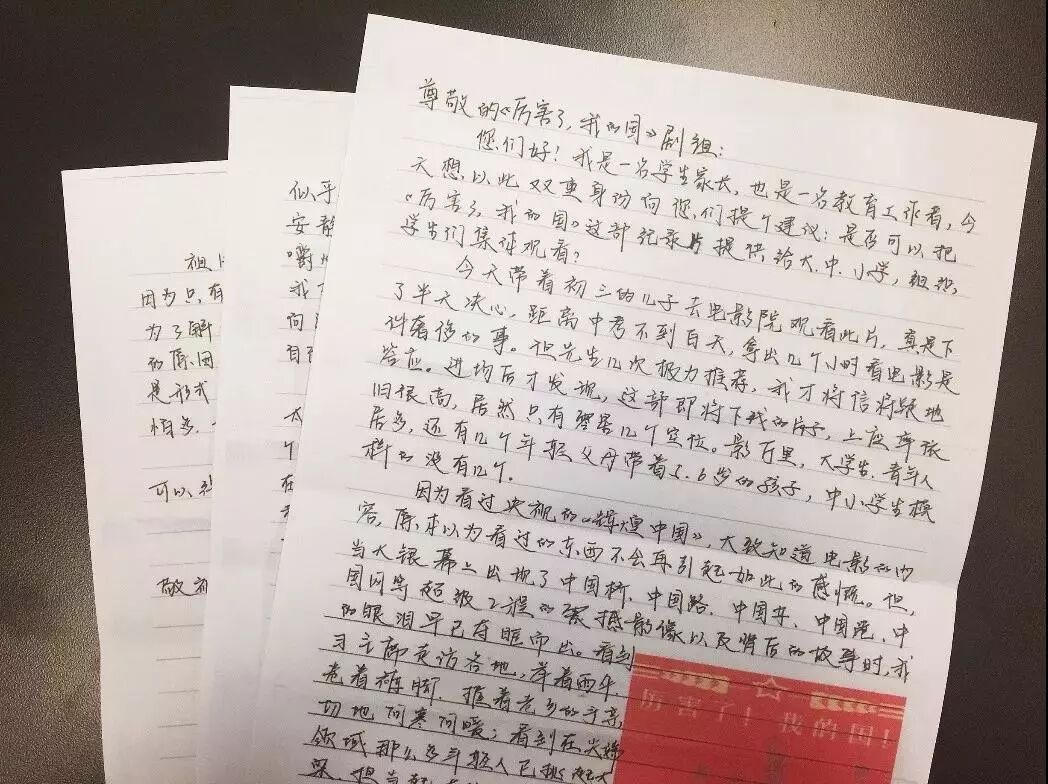 尊敬的《厉害了，我的国》剧组：
您们好！我是一名学生家长，也是一名教育工作者，今
天想以此双重身份向您们提个建议：是否可以把
《厉害了，我的国》这部纪录片提供给大、中、小学，组织
学生们集体观看？
今天带着初三的儿子去电影院观看此片，真是下
了半天决心，距离中考不到百天，拿出几个小时看电影是
件奢侈的事。但先生几次极力推荐，我才将信将疑地
答应。进场后才发现，这部即将下线的片子，上座率依
旧很高，居然只有零星几个空位。影厅里，大学生、青年人
居多，还有几个年轻父母带着5、6岁的孩子，中小学生模
样的没有几个。
因为看过央视的《辉煌中国》，大致知道电影的内
容，原本以为看过的东西不会再引起如此的感慨。但，
当大银幕上出现了中国桥、中国路、中国车、中国港、中
国网等超级工程的震撼影像以及背后的故事时，我
的眼泪早已夺眶而出。看到
习主席走访各地，举着雨伞，
卷着裤脚，握着老乡的手亲
切地问寒问暖；看到在尖端
领域那么多年轻人已挑起大
梁，担当
似乎
安静
嚼
我
向
自
太
个
在
祖国
因为只有
为了解
的原因
是形式
怕多
可以
敬祝
厉害了！我的国！